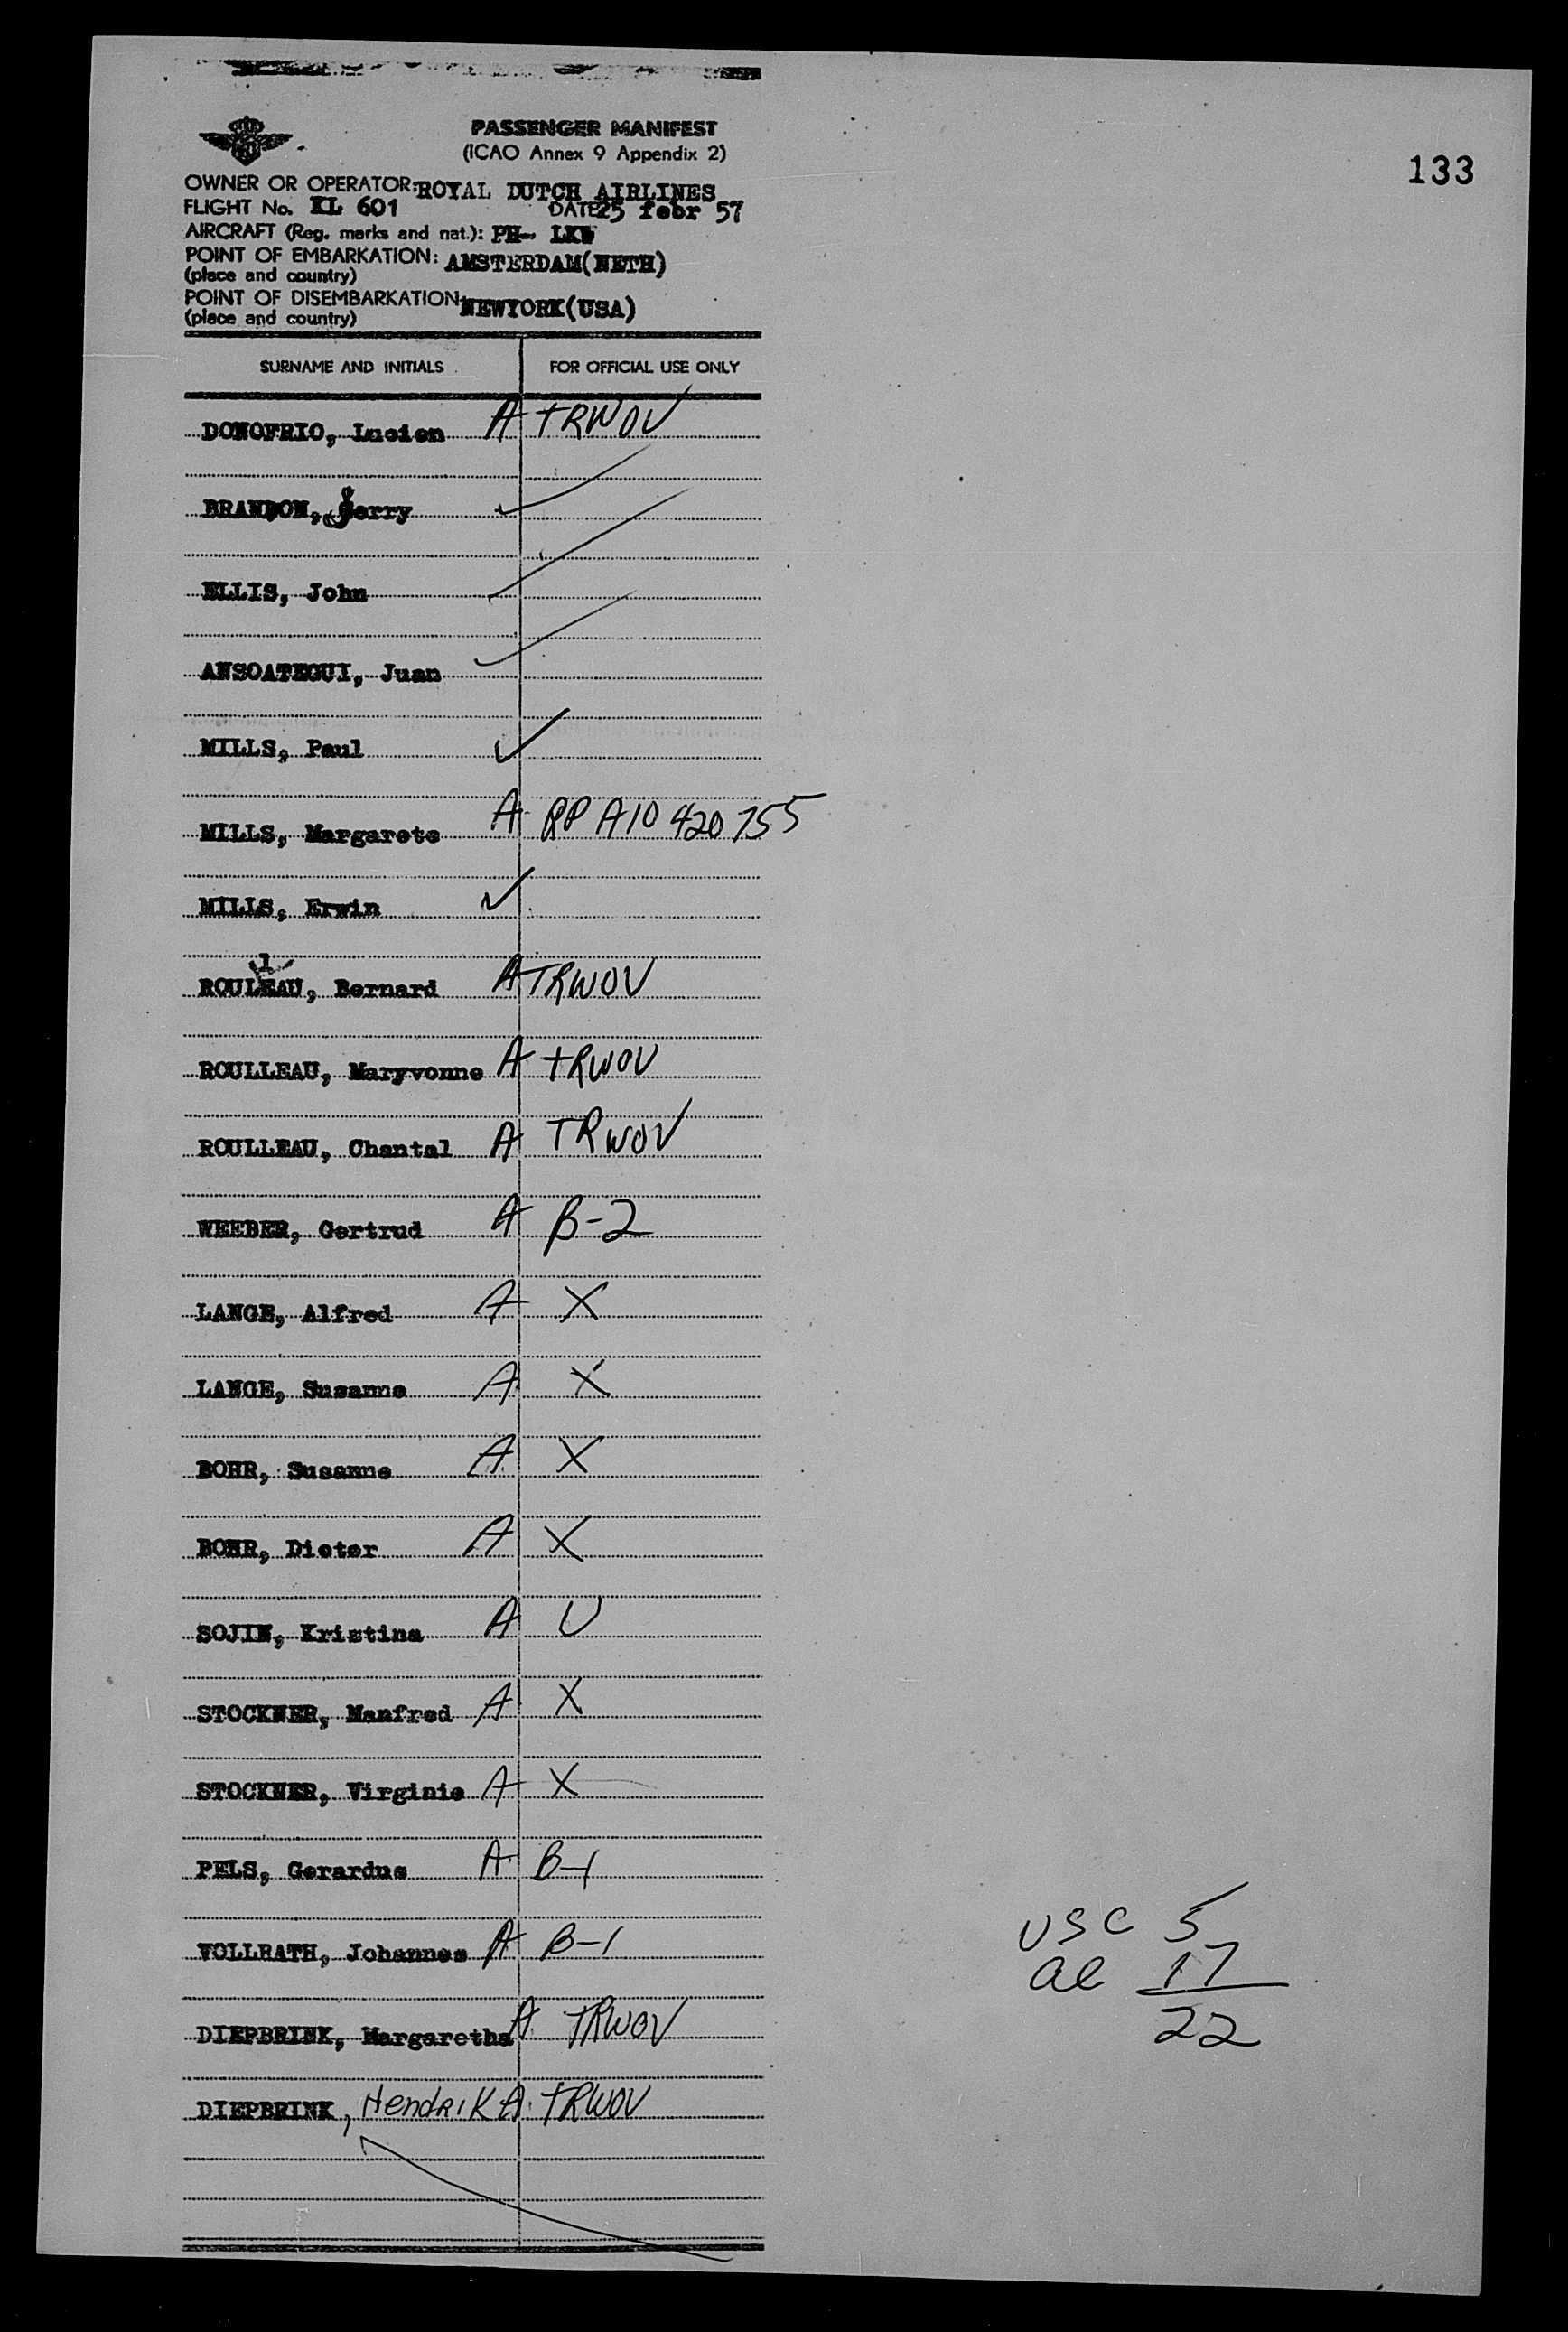 PASSENGER MANIFEST
(ICAO Annex 9 Appendix 2)
133
OWNER OR OPERATOR: ROYAL DUTCH AIRLINES
FLIGHT No. KL 601 DATE 25 febr 57
AIRCRAFT (Reg. marks and nat.): PH-
POINT OF EMBARKATION: AMSTERDAM(NETH)
(place and country)
POINT OF DISEMBARKATION: NEWYORK(USA)
(place and country)
SURNAME AND INITIALS FOR OFFICIAL USE ONLY
DONOFRIO, Lucien A TRWOV
BRANDON, Jerry ✓
ELLIS, John ✓
ANSOATEGUI, Juan ✓
MILLS, Paul ✓
MILLS, Margarete A RP A10 420 755
MILLS, Erwin ✓
l
ROULEAU, Bernard A TRWOV
ROULLEAU, Maryvonne A TRWOV
ROULLEAU, Chantal A TRWOV
WEEBER, Gertrud A B-2
LANGE, Alfred A X
LANGE, Susanne A X
BOHR, Susanne A X
BOHR, Dieter A X
SOJIN, Kristina A U
STOCKNER, Manfred A X
STOCKNER, Virginie A X
PELS, Gerardus A B-1
VOLLRATH, Johannes A B-1
USC 5
al 17
22
DIEPBRINK, Margaretha A TRWOV
DIEPBRINK, Hendrik A TRWOV